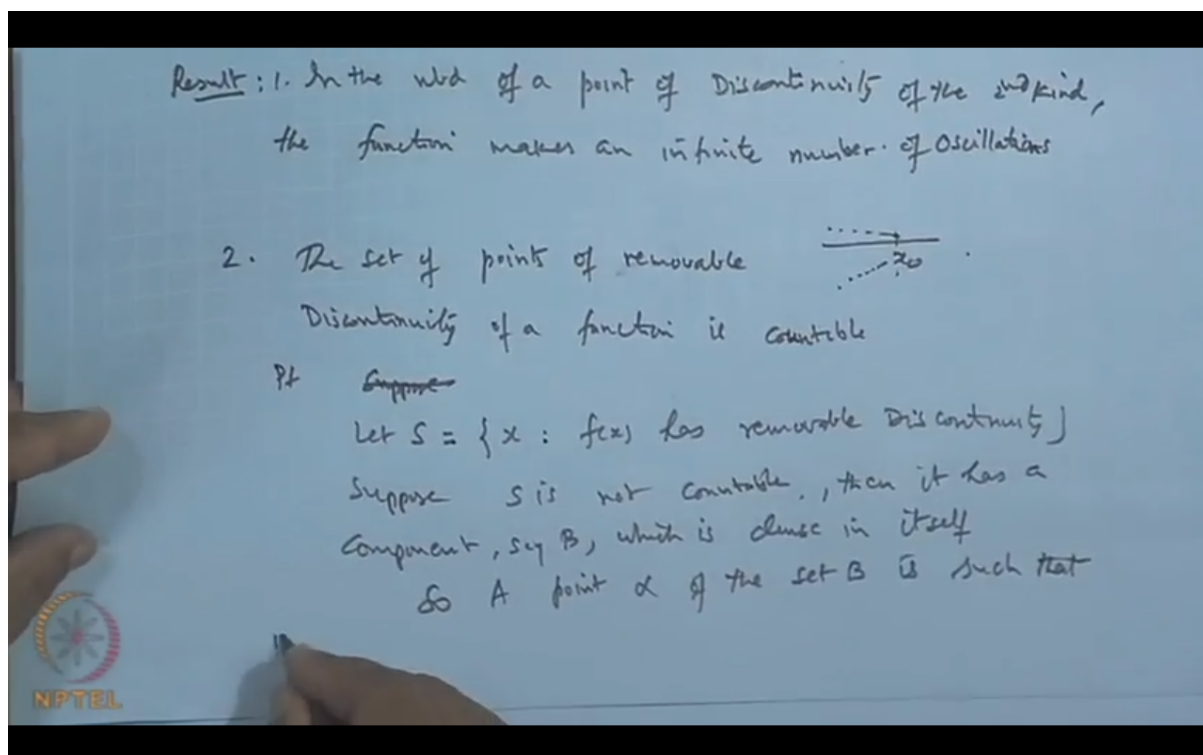 Result : 1. In the nbd of a point of Discontinuity of the 2nd kind,
the function makes an infinite number of Oscillations
2. The set of points of removable
x₀
Discontinuity of a function is countable
Pf Suppose
Let S = { x : f(x) has removable Discontinuity }
Suppose S is not countable, then it has a
Component, say B, which is dense in itself
So A point α of the set B is such that
NPTEL